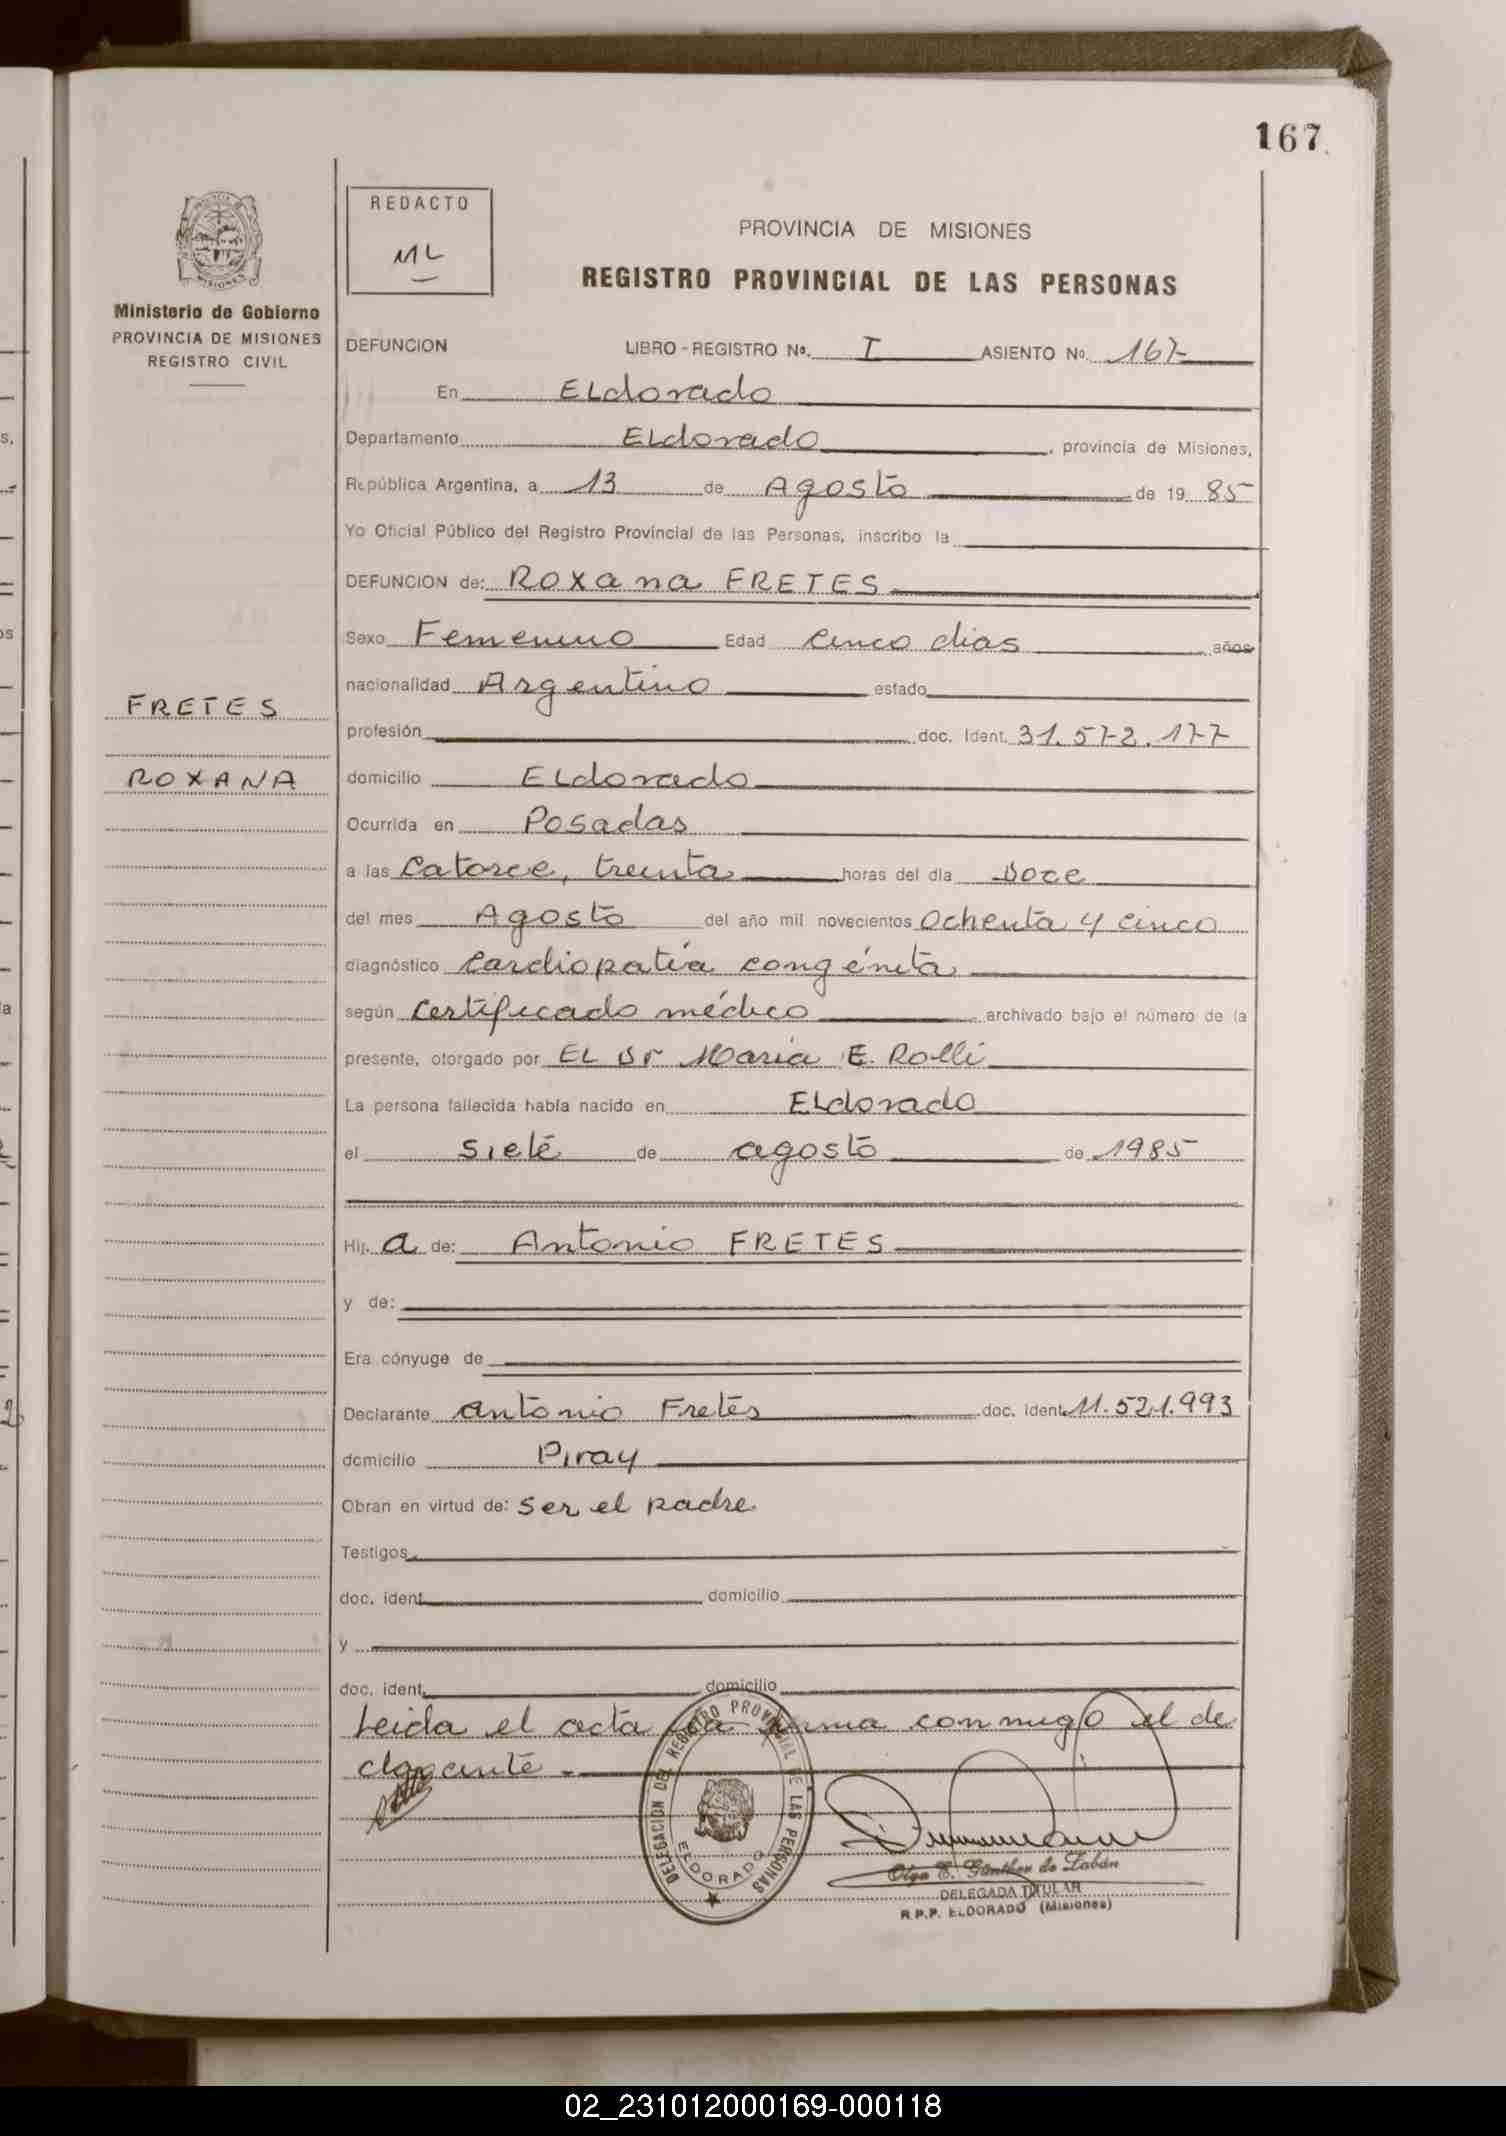 167
REDACTO
ML
PROVINCIA DE MISIONES
REGISTRO PROVINCIAL DE LAS PERSONAS
Ministerio de Gobierno
PROVINCIA DE MISIONES
REGISTRO CIVIL
DEFUNCION LIBRO-REGISTRO Nº. I ASIENTO Nº. 167
En ELdorado
Departamento ELdorado, provincia de Misiones,
República Argentina, a 13 de Agosto de 19 85
Yo Oficial Público del Registro Provincial de las Personas, inscribo la
DEFUNCION de: Roxana FRETES
Sexo Femenino Edad cinco dias años
nacionalidad Argentino estado
FRETES
profesión doc. Ident. 31.572.177
ROXANA
domicilio ELdorado
Ocurrida en Posadas
a las Catorce, treinta horas del día Doce
del mes Agosto del año mil novecientos ochenta y cinco
diagnóstico cardiopatía congénita
según certificado médico archivado bajo el número de la
presente, otorgado por EL Dr María E. Rolli
La persona fallecida había nacido en ELdorado
el siete de agosto de 1985
Hij a de: Antonio FRETES
y de:
Era cónyuge de
Declarante Antonio Fretes doc. ident. 11.521.993
domicilio Piray
Obran en virtud de: Ser el padre
Testigos
doc. ident. domicilio
y
doc. ident. domicilio
Leida el acta la firma conmigo el de
clarante.-
DELEGACION DEL REGISTRO PROVINCIAL DE LAS PERSONAS
ELDORADO
Olga E. Günther de Labán
DELEGADA TITULAR
R.P.P. ELDORADO (Misiones)
02_231012000169-000118